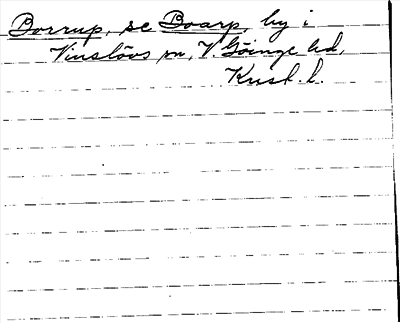 Borrup, se Boarp, by i
Vinslövs sn, V. Göinge hd,
Krist. l.